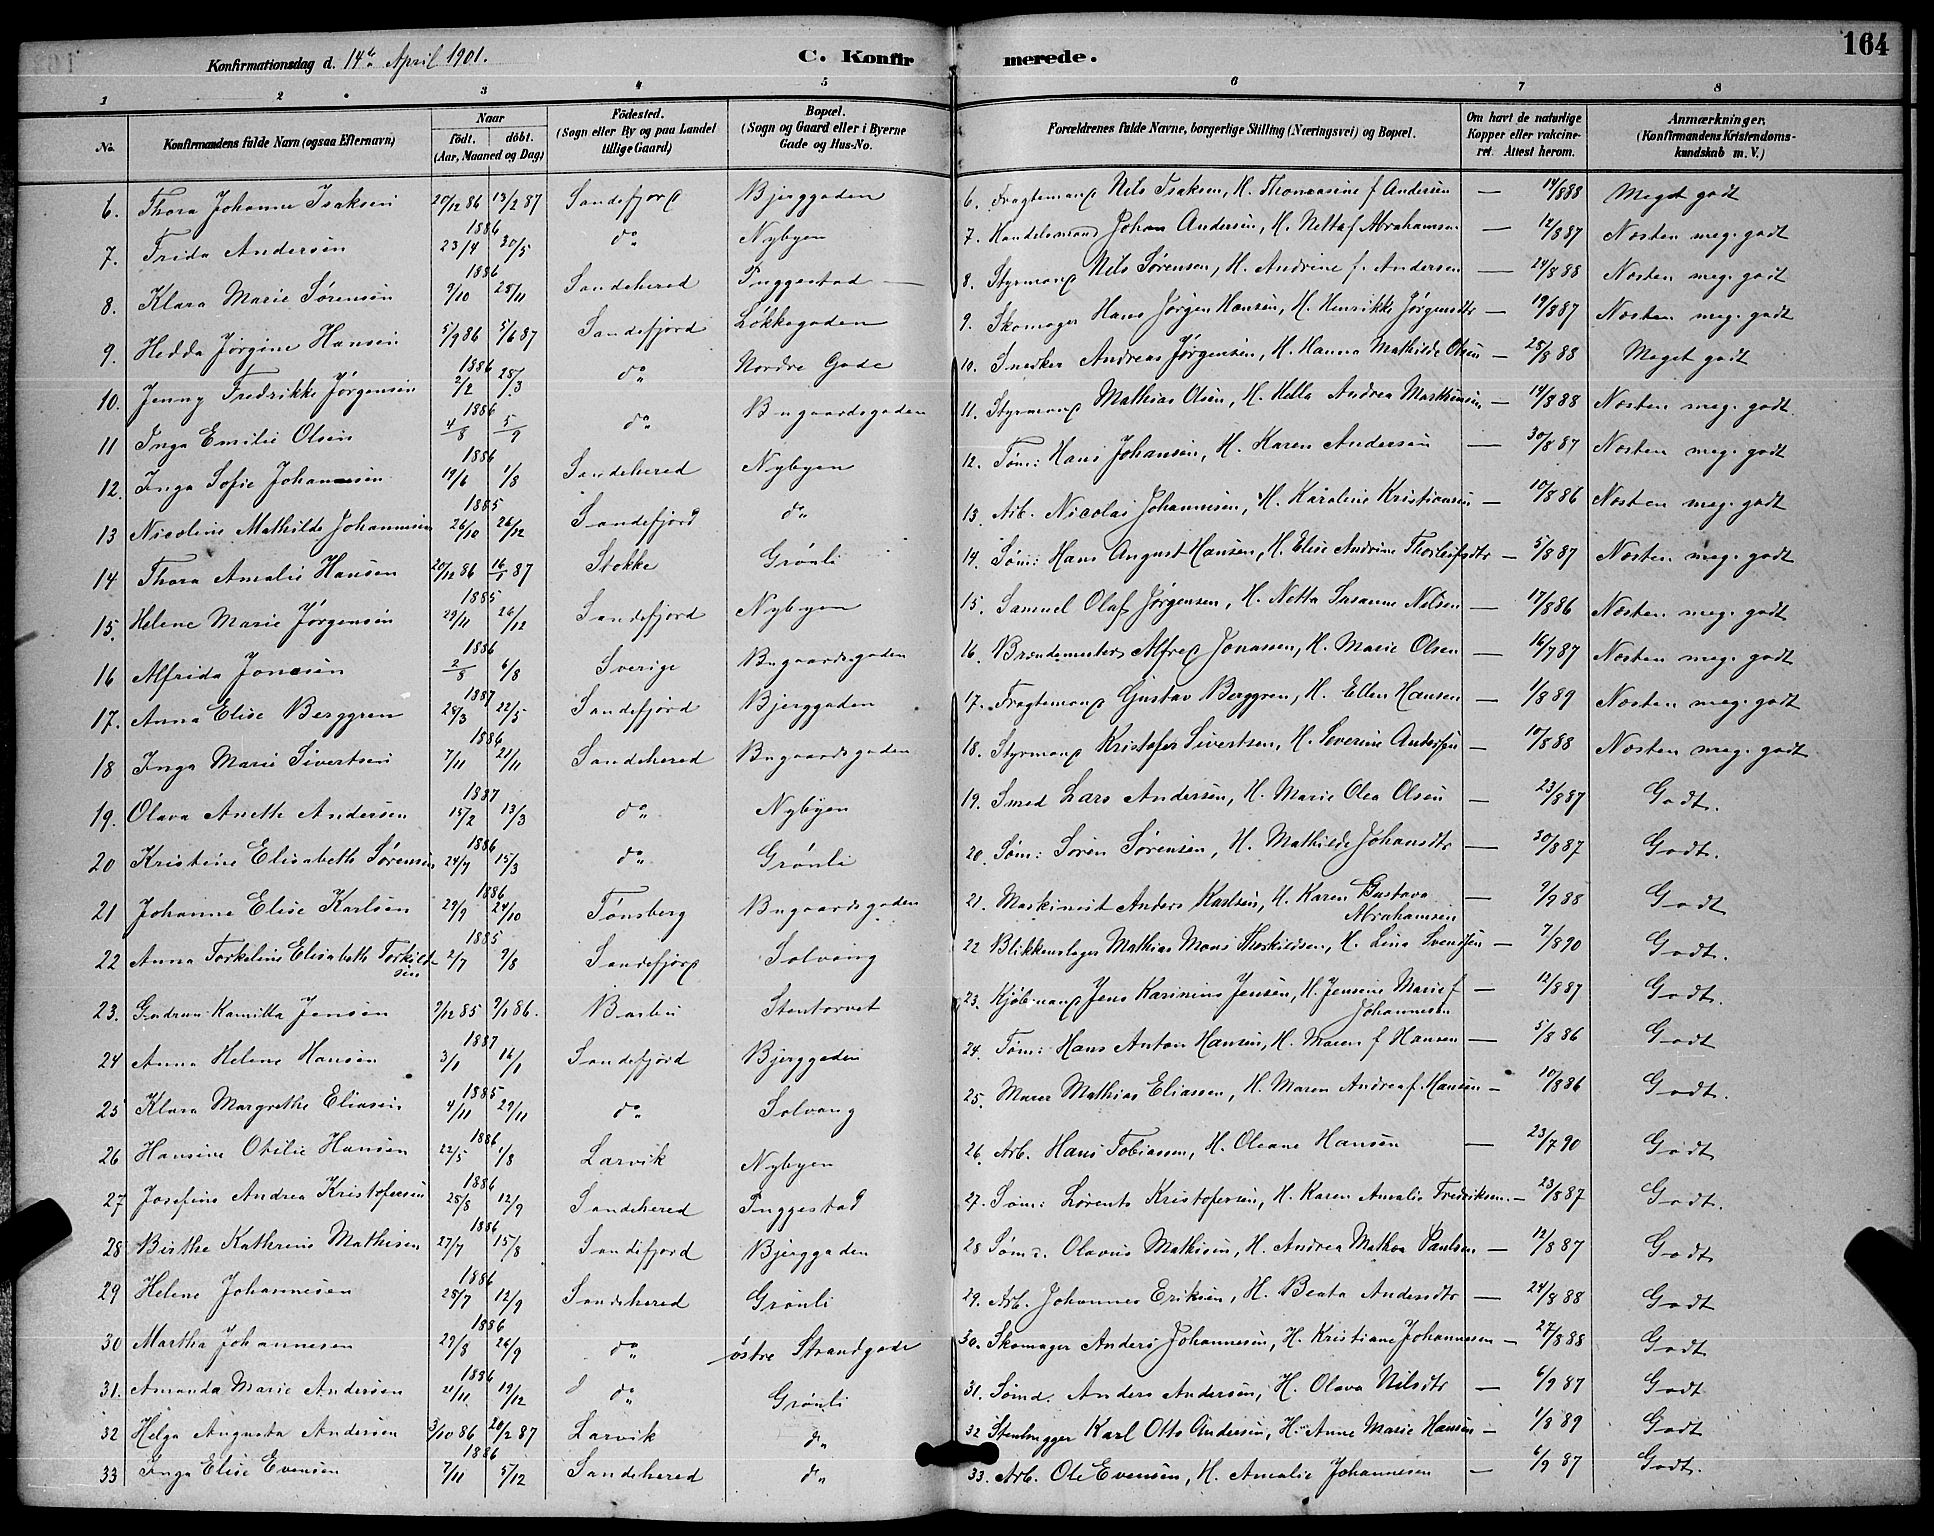 Konfirmationsdag d. 14de April 1901.
C. Konfirmerede.
164
1 2 3 4 5 6 7 8
No.
Konfirmandens fulde Navn (ogsaa Efternavn)
Naar födt. döbt. (Aar, Maaned og Dag)
Födested. (Sogn eller By og paa Landet tillige Gaard)
Bopæl. (Sogn og Gaard eller i Byerne Gade og Hus-No.
Forældrenes fulde Navne, borgerlige Stilling (Næringsvei) og Bopæl.
Om havt de naturlige Kopper eller vakcineret. Attest herom.
Anmærkninger. (Konfirmandens Kristendomskundskab m. V.)
6. Thora Johanne Isaksen 20/12 86 13/2 87 Sandefjord Bjerggaden 6. Fragtemand Nils Isaksen, H. Thomasine f Andersen — 14/8 88 Meget godt
7. Frida Andersen 1886 23/4 30/5 do Nybyen 7. Handelsmand Johan Andersen, H. Netta f Abrahamsen — 12/8 87 Næsten meg. godt
8. Klara Marie Sørensen 1886 9/10 28/11 Sandehered Puggestad 8. Styrmand Nils Sørensen, H. Andrine f. Andersen — 24/8 88 Næsten meg. godt
9. Hedda Jørgine Hansen 5/9 86 5/6 87 Sandefjord Løkkegaden 9. Skomager Hans Jørgen Hansen, H. Henrikke Jørgensdtr — 19/8 87 Næsten meg. godt
10. Jenny Fredrikke Jørgensen 1886 2/2 28/3 do Nordre Gade 10. Snedker Andreas Jørgensen, H. Hanna Mathilde Olsen — 28/8 88 Meget godt
11 Inga Emilie Olsen 1886 4/8 5/9 do Bugaardsgaden 11. Styrmand Mathias Olsen, H. Hella Andrea Mathisen — 14/8 88 Næsten meg. godt
12. Inga Sofie Johannesen 1886 19/6 1/8 Sandehered Nybyen 12. Tøm: Hans Johansen, H. Karen Andersen — 30/8 87 Næsten meg. godt
13 Nicoline Mathilde Johannesen 1885 26/10 26/12 Sandefjord do 13. Arb. Nicolai Johannesen, H. Karoline Kristiansen — 10/8 86 Næsten meg. godt
14 Thora Amalie Hansen 20/12 86 16/5 87 Stokke Grønli 14. Søm: Hans August Hansen, H. Elise Andrine Thorleifsdtr — 5/8 87 Næsten meg. godt
15. Helene Marie Jørgensen 1885 29/11 26/12 Sandefjord Nybyen 15. Samuel Olaf Jørgensen, H. Netta Susanne Nilsen — 17/8 86 Næsten meg. godt
16 Alfrida Jonasen 1886 2/5 6/8 Sverige Bugaardsgaden 16. Brændemester Alfred Jonassen, H. Marie Olsen — 16/7 87 Næsten meg. godt
17. Anna Elise Berggren 1887 28/3 22/5 Sandefjord Bjerggaden 17. Fragtemand Gustav Berggren, H. Ellen Hansen — 1/8 89 Næsten meg. godt
18 Inga Marie Sivertsen 1886 7/11 21/11 Sandehered Bugaardsgaden 18. Styrmand Kristofer Sivertsen, H. Severine Andersen — 10/8 88 Næsten meg. godt
19. Olava Anette Andersen 1887 15/2 13/3 do Nybyen 19. Smed Lars Andersen, H. Marie Olea Olsen — 23/8 87 Godt.
20 Kristine Elisabeth Sørensen 1886 24/7 15/3 do Grønli 20. Søm: Søren Sørensen, H. Mathilde Johansdtr — 30/8 87 Godt.
21 Johanne Elise Karlsen 1886 29/9 24/10 Tønsberg Bugaardsgaden 21. Maskinist Anders Karlsen, H. Karen Gustava Abrahamsen — 9/9 88 Godt
22 Anna Torkeline Elisabeth Torkildsen 1885 2/7 9/8 Sandefjord Solvang 22 Blikkenslager Mathias Mons Thorkildsen, H. Lina Svendsen — 7/8 90 Godt.
23. Gudrun Kamilla Jensen 2/12 85 2/1 86. Barbu Stentorvet 23. Kjøbmand Jens Karinius Jensen, H. Jensine Marie f Johannesen 12/8 87 Godt.
24 Anna Helene Hansen 1887 3/1 16/1 Sandefjord Bjerggaden 24. Tøm: Hans Anton Hansen, H. Maren f Hansen — 5/8 86 Godt
25 Klara Margrethe Eliasen 1885 4/11 29/11 do Solvang 25. Murer Mathias Eliassen, H. Maren Andrea f. Hansen — 10/8 86 Godt.
26 Hansine Otilie Hansen 1886 22/5 1/8 Larvik Nybyen 26. Arb. Hans Tobiassen, H. Oleane Hansen — 23/7 90 Godt
27 Josefine Andrea Kristofersen 1886 25/8 12/9 Sandehered Puggestad 27. Søm: Lorents Kristofersen, H. Karen Amalie Fredriksen. — 23/8 87 Godt.
28 Birthe Kathrine Mathisen 1886 27/7 15/8 Sandefjord Bjerggaden 28 Søm: Olavus Mathisen, H. Andrea Mathea Paulsen — 12/8 87 Godt
29 Helene Johannesen 1886 25/7 12/9 Sandehered Grønli 29. Arb. Johannes Eriksen, H. Beata Andersdtr — 24/8 88 Godt
30 Martha Johannesen 1886 29/8 26/9 do østre Strandgade 30. Skomager Anders Johannesen, H. Kristiane Johannesen — 27/8 88 Godt
31. Amanda Marie Andersen 1886 21/11 19/12 do Grønli 31. Sømd. Anders Andersen, H. Olava Nilsdtr — 6/9 87 Godt
32 Helga Augusta Andersen 3/10 86 20/2 87 Larvik do 32 Stenhugger Karl Otto Andersen, H. Anne Marie Hansen — 1/8 89 Godt
33 Inga Elise Evensen 1886 7/11 5/12 Sandehered do 33. Arb. Ole Evensen, H. Amalie Johannesen — 6/9 87 Godt.